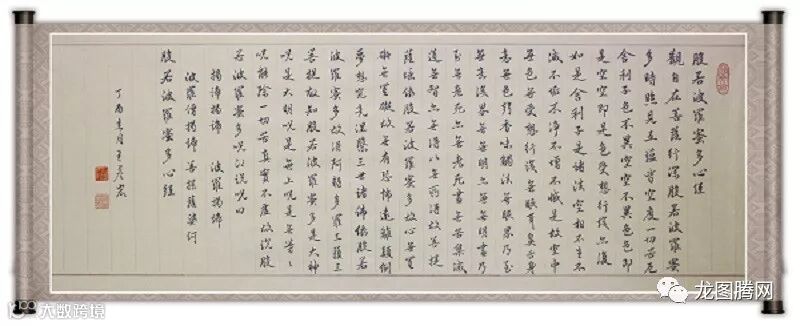 般若波羅蜜多心経
觀自在菩薩行深般若波羅蜜
多時照見五蘊皆空度一切苦厄
舍利子色不異空空不異色色即
是空空即是色受想行識亦復
如是舍利子是諸法空相不生不
滅不垢不淨不增不減是故空中
無色無受想行識無眼耳鼻舌身
意無色聲香味觸法無眼界乃至
無意識界無無明亦無無明盡乃
至無老死亦無老死盡無苦集滅
道無智亦無得以無所得故菩提
薩埵依般若波羅蜜多故心無罣
礙無罣礙故無有恐怖遠離顛倒
夢想究竟涅槃三世諸佛依般若
波羅蜜多故得阿耨多羅三藐三
菩提故知般若波羅蜜多是大神
咒是大明咒是無上咒是無等等
咒能除一切苦真實不虛故說般
若波羅蜜多咒即說咒曰
揭諦揭諦 波羅揭諦
波羅僧揭諦 菩提薩婆訶
般若波羅蜜多心經
丁酉 月王
大数跨境
龙图腾网